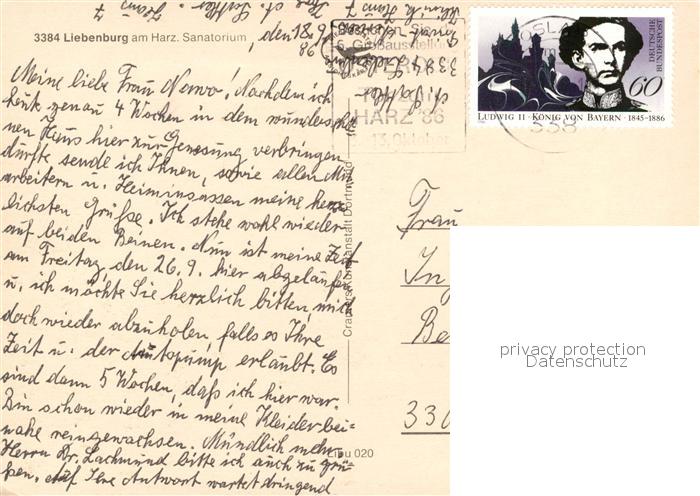 3384 Liebenburg am Harz. Sanatorium
, den 18.9.
86
Meine liebe Frau Nowo. Nachdem ich
heute genau 4 Wochen in dem wunderschö
nen Haus hier zur Genesung verbringen
durfte sende ich Ihnen, sowie allen Mit
arbeitern u. Heiminsassen meine herz
lichsten Grüße. Ich stehe wohl wieder
auf beiden Beinen. Nun ist meine Zeit
am Freitag, den 26.9. hier abgelaufen
u. ich möchte Sie herzlich bitten, mich
doch wieder abzuholen, falls es Ihre
Zeit u. der Autopump erlaubt. Es
sind dann 5 Wochen, daß ich hier war.
Bin schon wieder in meine Kleider bei-
nahe reingewachsen. Mündlich mehr.
Herrn Dr. Lachmund bitte ich auch zu grü-
ßen. Auf Ihre Antwort wartet dringend
3384
6. Großausstellung
HARZ '86
13. Oktober
GOSLAR
338
DEUTSCHE
BUNDESPOST
60
LUDWIG II · KÖNIG VON BAYERN · 1845-1886
Cramers Kunstanstalt Dortmund
Frau
In
Be
330
privacy protection
Datenschutz
u 020